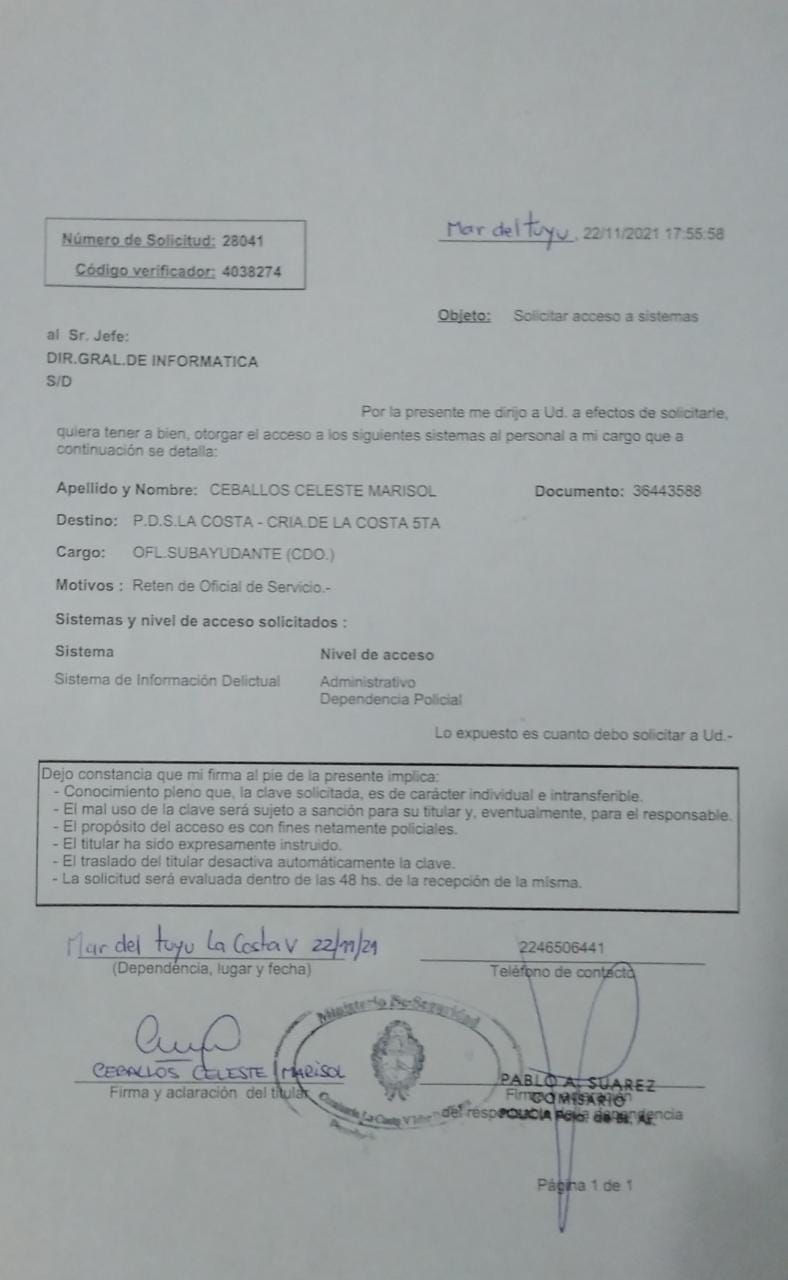 Mar del tuyu, 22/11/2021 17:55:58
Número de Solicitud: 28041
Código verificador: 4038274
Objeto: Solicitar acceso a sistemas
al Sr. Jefe:
DIR.GRAL.DE INFORMATICA
S/D
Por la presente me dirijo a Ud. a efectos de solicitarle,
quiera tener a bien, otorgar el acceso a los siguientes sistemas al personal a mi cargo que a
continuación se detalla:
Apellido y Nombre: CEBALLOS CELESTE MARISOL Documento: 36443588
Destino: P.D.S.LA COSTA - CRIA.DE LA COSTA 5TA
Cargo: OFL.SUBAYUDANTE (CDO.)
Motivos : Reten de Oficial de Servicio.-
Sistemas y nivel de acceso solicitados :
Sistema Nivel de acceso
Sistema de Información Delictual Administrativo
Dependencia Policial
Lo expuesto es cuanto debo solicitar a Ud.-
Dejo constancia que mi firma al pie de la presente implica:
- Conocimiento pleno que, la clave solicitada, es de carácter individual e intransferible.
- El mal uso de la clave será sujeto a sanción para su titular y, eventualmente, para el responsable.
- El propósito del acceso es con fines netamente policiales.
- El titular ha sido expresamente instruido.
- El traslado del titular desactiva automáticamente la clave.
- La solicitud será evaluada dentro de las 48 hs. de la recepción de la misma.
Mar del tuyu La Costa V 22/11/21 2246506441
(Dependencia, lugar y fecha) Teléfono de contacto
Ministerio De Seguridad
CEBALLOS CELESTE MARISOL
PABLO A. SUAREZ
Firma y aclaración del titular
COMISARIO
del
Página 1 de 1